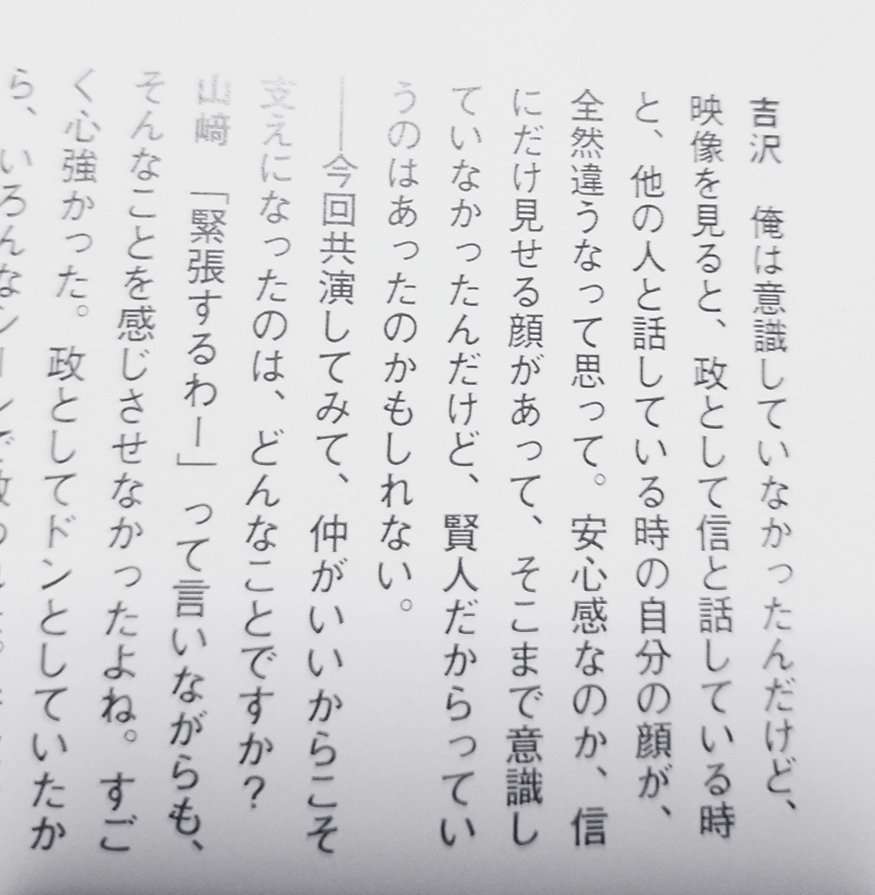 吉沢　俺は意識していなかったんだけど、
映像を見ると、政として信と話している時
と、他の人と話している時の自分の顔が、
全然違うなって思って。安心感なのか、信
にだけ見せる顔があって、そこまで意識し
ていなかったんだけど、賢人だからってい
うのはあったのかもしれない。
――今回共演してみて、仲がいいからこそ
支えになったのは、どんなことですか？
山﨑　「緊張するわー」って言いながらも、
そんなことを感じさせなかったよね。すご
く心強かった。政としてドンとしていたか
ら、いろんなシーンで救われた。